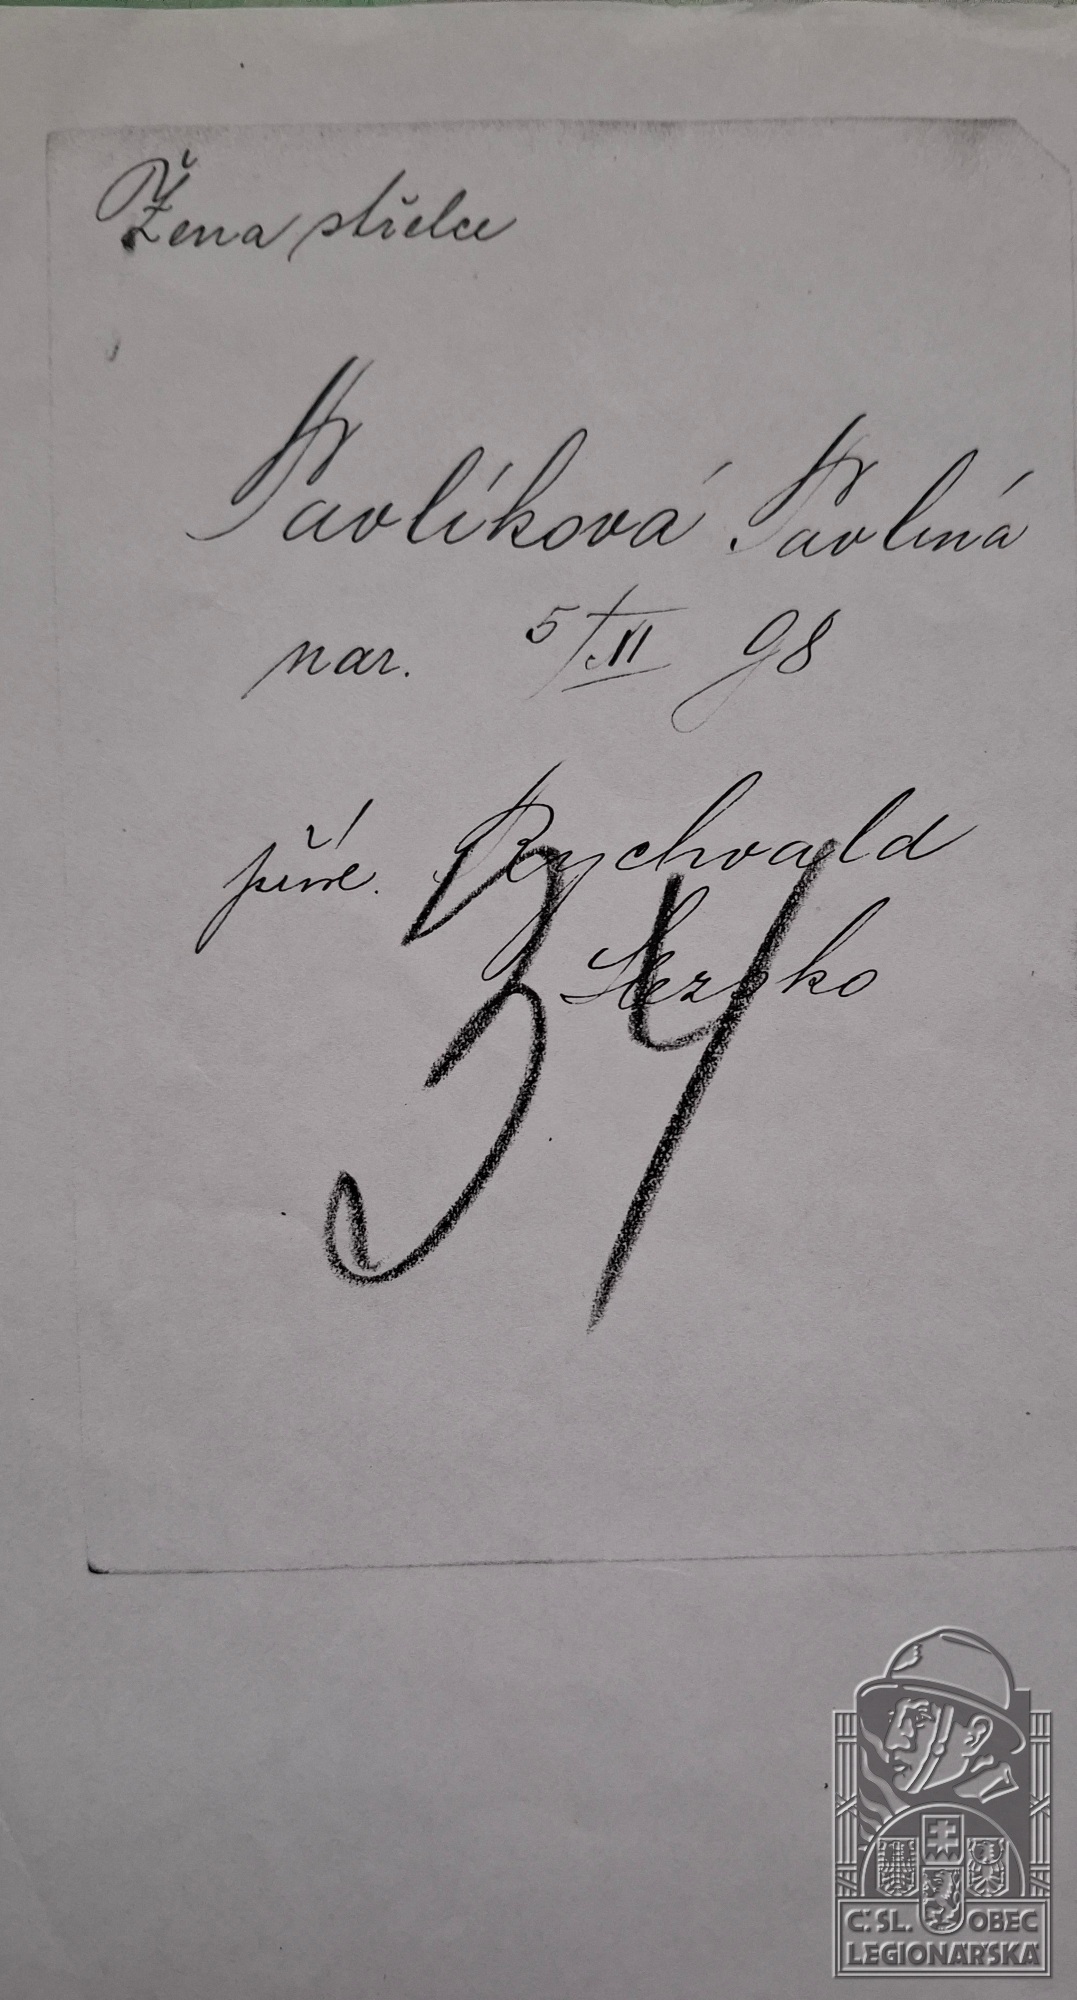 Žena střelce
Pavlíková Pavlína
nar. 5/XI 98
přísl. Rychvald
Slezsko
34
Č. SL. OBEC
LEGIONÁŘSKÁ